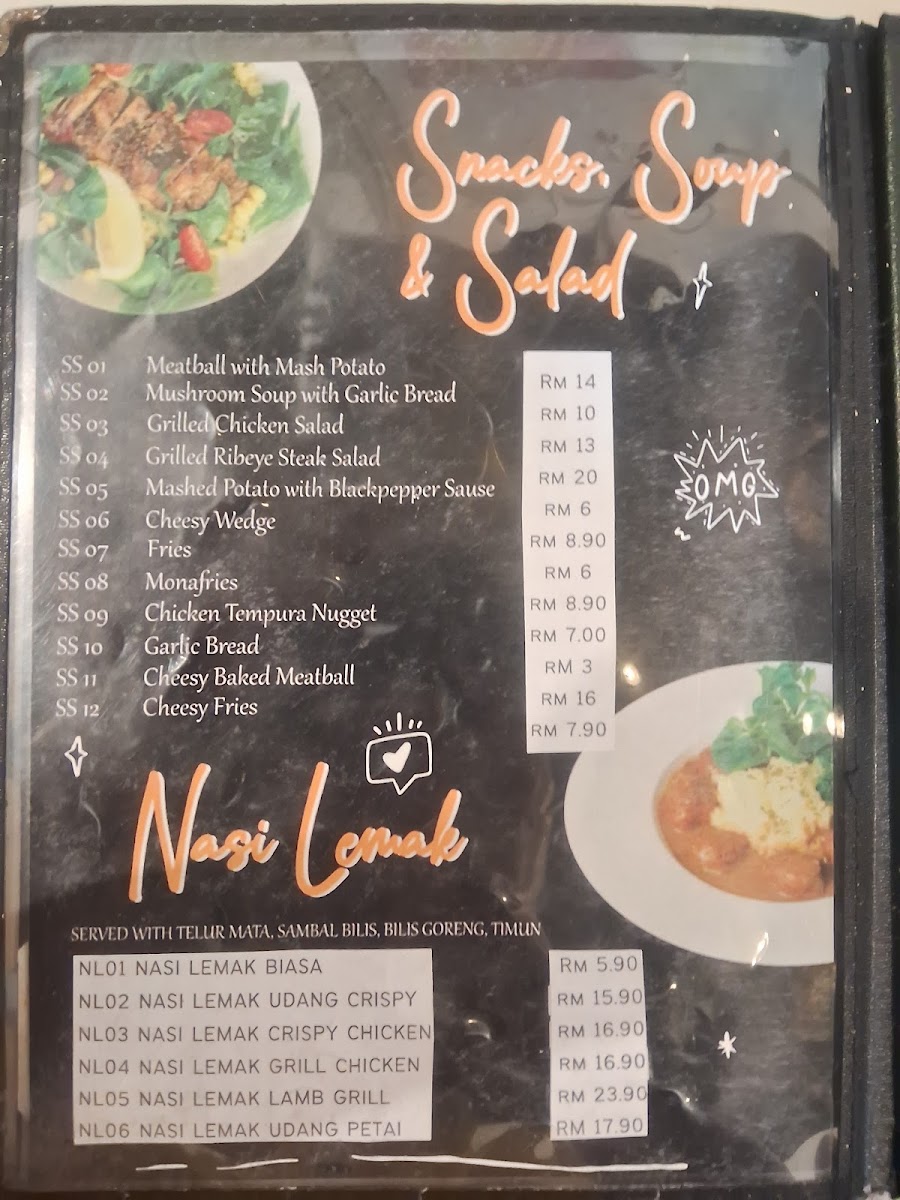 Snacks, Soup
& Salad
SS 01 Meatball with Mash Potato RM 14
SS 02 Mushroom Soup with Garlic Bread RM 10
SS 03 Grilled Chicken Salad RM 13
SS 04 Grilled Ribeye Steak Salad RM 20
SS 05 Mashed Potato with Blackpepper Sause RM 6
SS 06 Cheesy Wedge RM 8.90
SS 07 Fries RM 6
SS 08 Monafries RM 8.90
SS 09 Chicken Tempura Nugget RM 7.00
SS 10 Garlic Bread RM 3
SS 11 Cheesy Baked Meatball RM 16
SS 12 Cheesy Fries RM 7.90
OMG
Nasi Lemak
SERVED WITH TELUR MATA, SAMBAL BILIS, BILIS GORENG, TIMUN
NL01 NASI LEMAK BIASA RM 5.90
NL02 NASI LEMAK UDANG CRISPY RM 15.90
NL03 NASI LEMAK CRISPY CHICKEN RM 16.90
NL04 NASI LEMAK GRILL CHICKEN RM 16.90
NL05 NASI LEMAK LAMB GRILL RM 23.90
NL06 NASI LEMAK UDANG PETAI RM 17.90